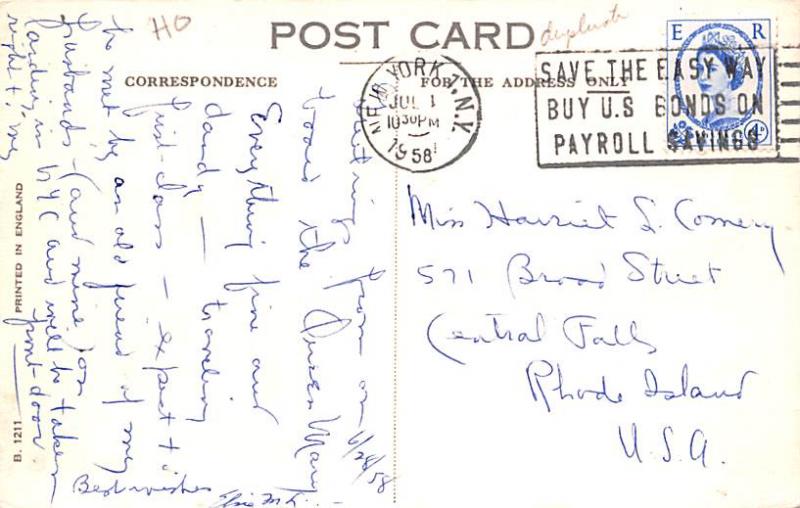 HO
POST CARD
duplicate
CORRESPONDENCE
FOR THE ADDRESS ONLY
NEW YORK 1, N.Y.
JUL 1
10 30 PM
1958
SAVE THE EASY WAY
BUY U.S BONDS ON
PAYROLL SAVINGS
E R
4D
6/28/58
Greetings from on
board the Queen Mary.
Everything fine and
dandy — traveling
first-class — expect to
be met by an old friend of my
husband's - (and mine) on
landing in NYC and will be taken
right to my front-door.
Best wishes
Miss Harriet L. Comery
571 Broad Street
Central Falls
Rhode Island
U.S.A.
B. 1211
PRINTED IN ENGLAND